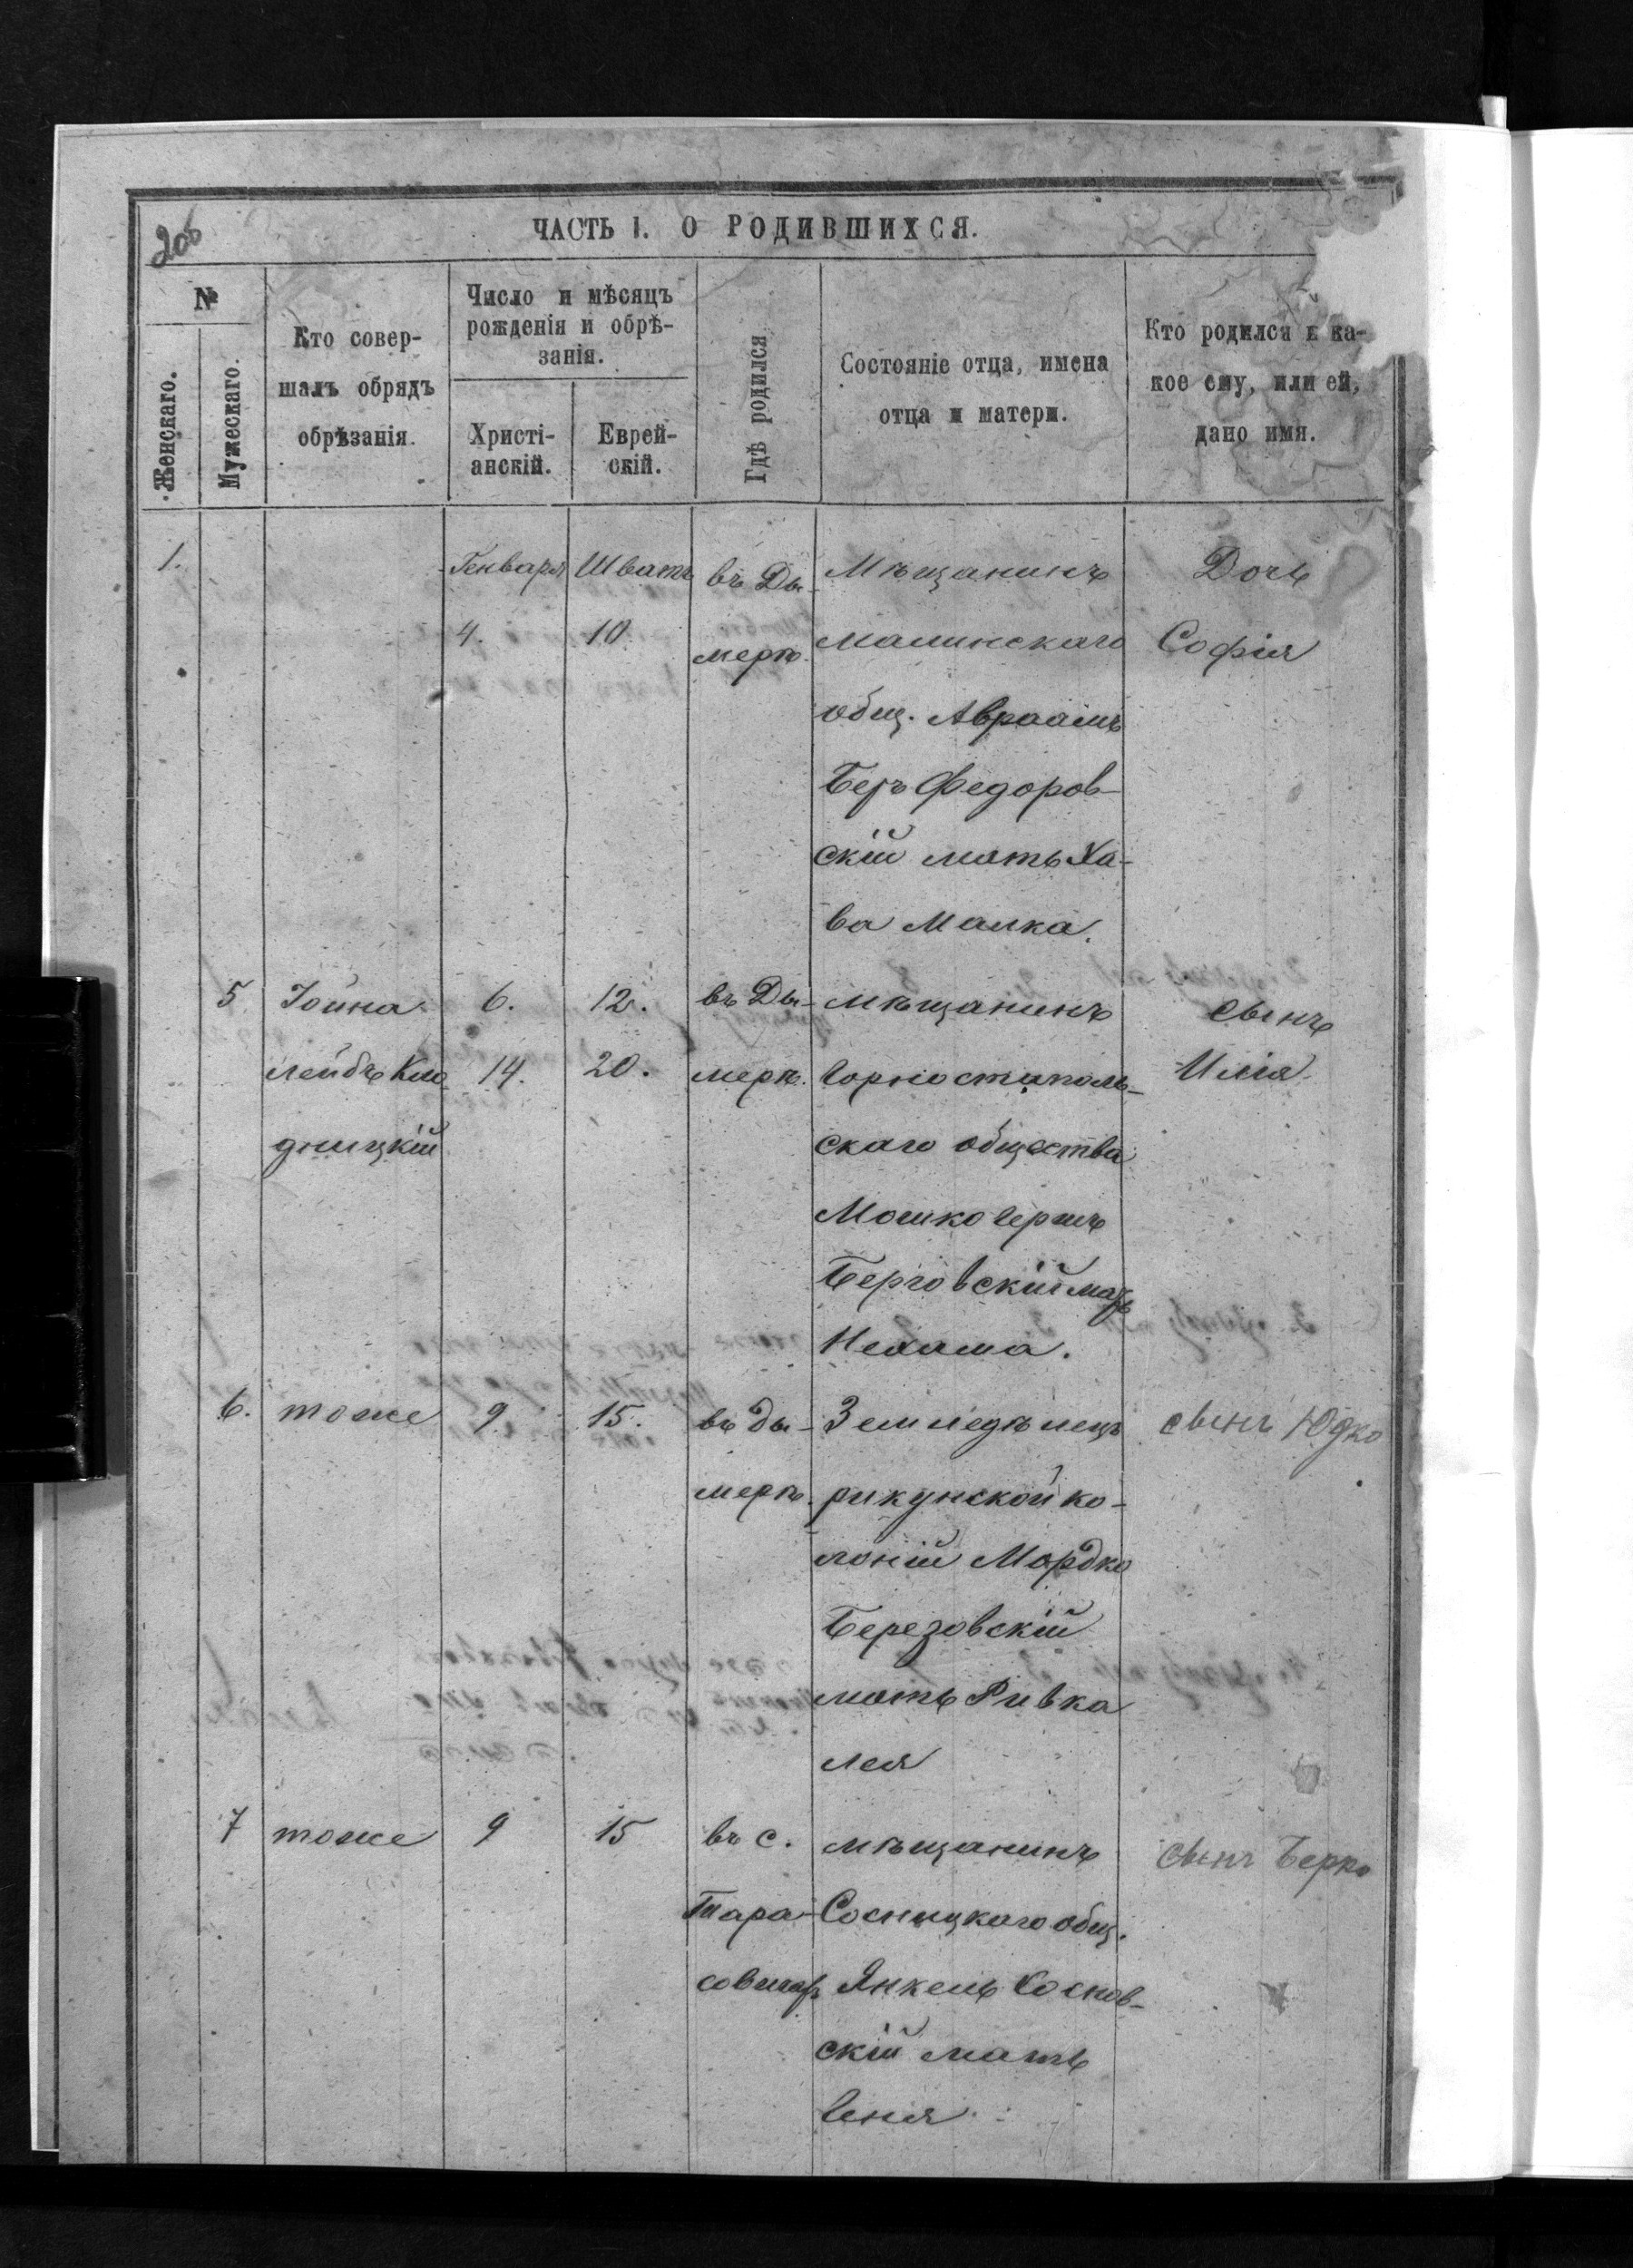 206
ЧАСТЬ I. О РОДИВШИХСЯ.
№
Женскаго.
Мужескаго.
Кто совер-
шалъ обрядъ
обрѣзанія.
Число и мѣсяцъ
рожденія и обрѣ-
занія.
Христі-
анскій.
Еврей-
скій.
Гдѣ родился
Состояніе отца, имена
отца и матери.
Кто родился и ка-
кое ему, или ей,
дано имя.
1.
Генваря
4.
Шватъ
10
въ Ды-
мерѣ.
Мѣщанинъ
Малинскаго
общ. Авраамъ
Беръ Федоров-
скій мать Ха-
ва Малка.
Дочь
Софія
5
Іойна
Лейбъ Кло
дницкій
6.
14.
12.
20.
въ Ды-
мерѣ.
мѣщанинъ
Горностаполь-
скаго общества
Мошко Гершъ
Берговскій мать
Нехама.
сынъ
Илія
6.
тоже
9.
15.
въ Ды-
мерѣ.
Земледѣлецъ
рикунской ко-
лоніи Мордко
Березовскій
мать Ривка
лея
сынъ Юдко
7
тоже
9
15
въ с.
Тара-
мѣщанинъ
Сосницкаго общ.
Янкель Соснов-
скій мать
Геня
сынъ Берко